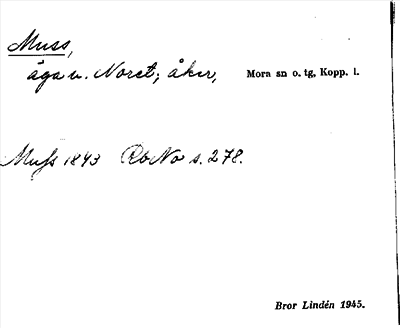 Muss,
äga u. Noret; åker, Mora sn o. tg, Kopp. l.
Muss 1843 RbNo s. 278.
Bror Lindén 1945.